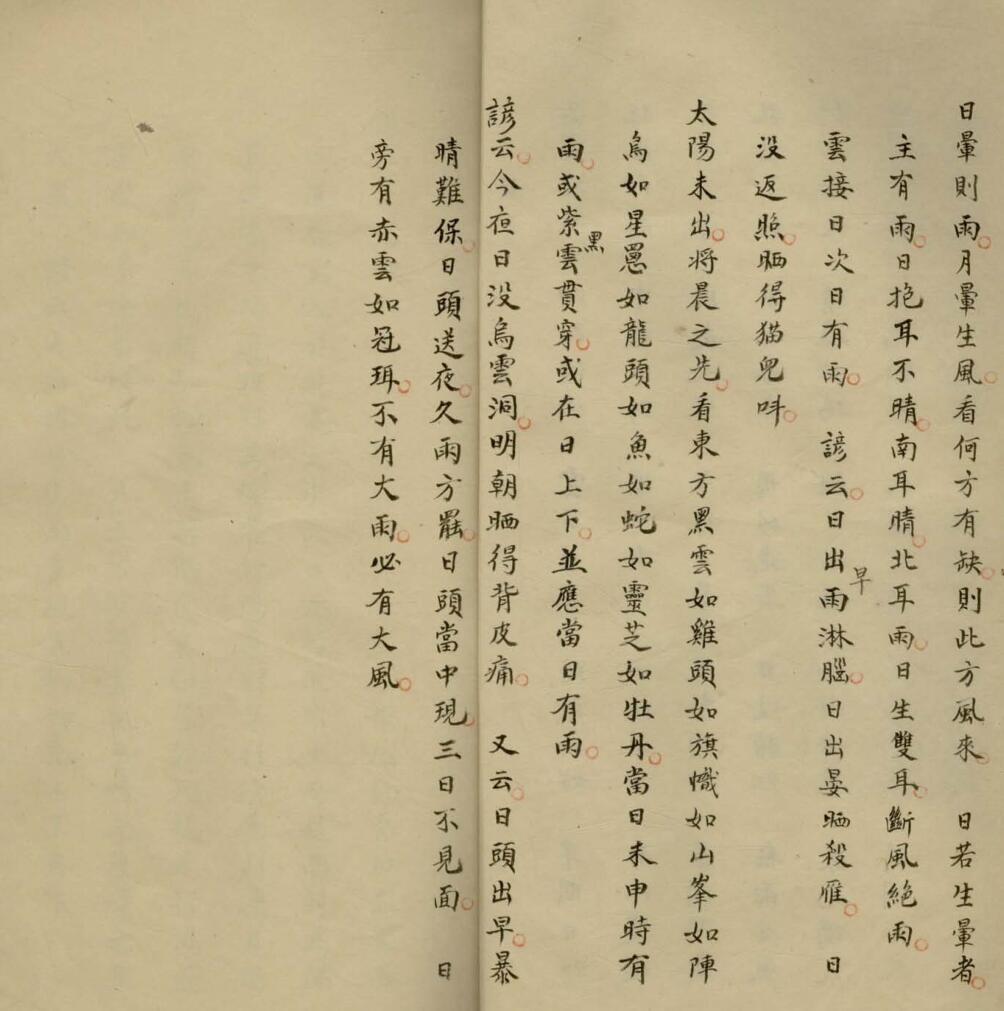 日暈則雨月暈生風看何方有缺則此方風來　日若生暈者
主有雨日抱耳不晴南耳晴北耳雨日生雙耳斷風絕雨
雲接日次日有雨　諺云日出早雨淋腦日出晏晒殺雁　日
没返照晒得猫兒呌
太陽未出將晨之先看東方黑雲如雞頭如旗幟如山峯如陣
鳥如星罳如龍頭如魚如蛇如靈芝如牡丹當日未申時有
雨或紫黑雲貫穿或在日上下並應當日有雨
諺云今夜日没烏雲洞明朝晒得背皮痛　又云日頭出早暴
晴難保日頭送夜久雨方罷日頭當中現三日不見面　日
旁有赤雲如冠珥不有大雨必有大風